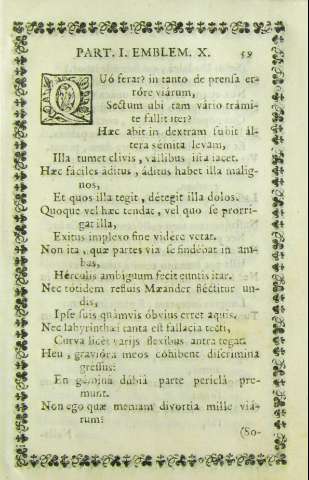 PART. I. EMBLEM. X. 59
QUó ferar? in tanto de prensa er-
róre viárum,
Sectum ubi tam vário trámi-
te fallit iter?
Hæc abit in dextram subit ál-
tera sémita levam,
Illa tumet clivis, vállibus ista jacet.
Hæc fáciles áditus, áditus habet illa malig-
nos,
Et quos illa tegit, détegit illa dolos.
Quoque vel hæc tendat, vel quo se prorri-
gat illa,
Exitus implexo fine vidére vetat.
Non ita, quæ partes via se findebat in am-
bas,
Hérculis ambiguum fecit euntis itar.
Nec tótidem refluis Mæander fléctitur un-
dis,
Ipse suis quámvis óbvius erret aquis.
Nec labyrinthæi tanta est fallácia tecti,
Curva licèt várijs flexibus antra tegat.
Heu, gravióra meos cóhibent discrimina
gressus:
En gemina dúbiâ parte períclá pre-
munt.
Non ego quæ metuam divórtia mille viá-
rum?
(So-